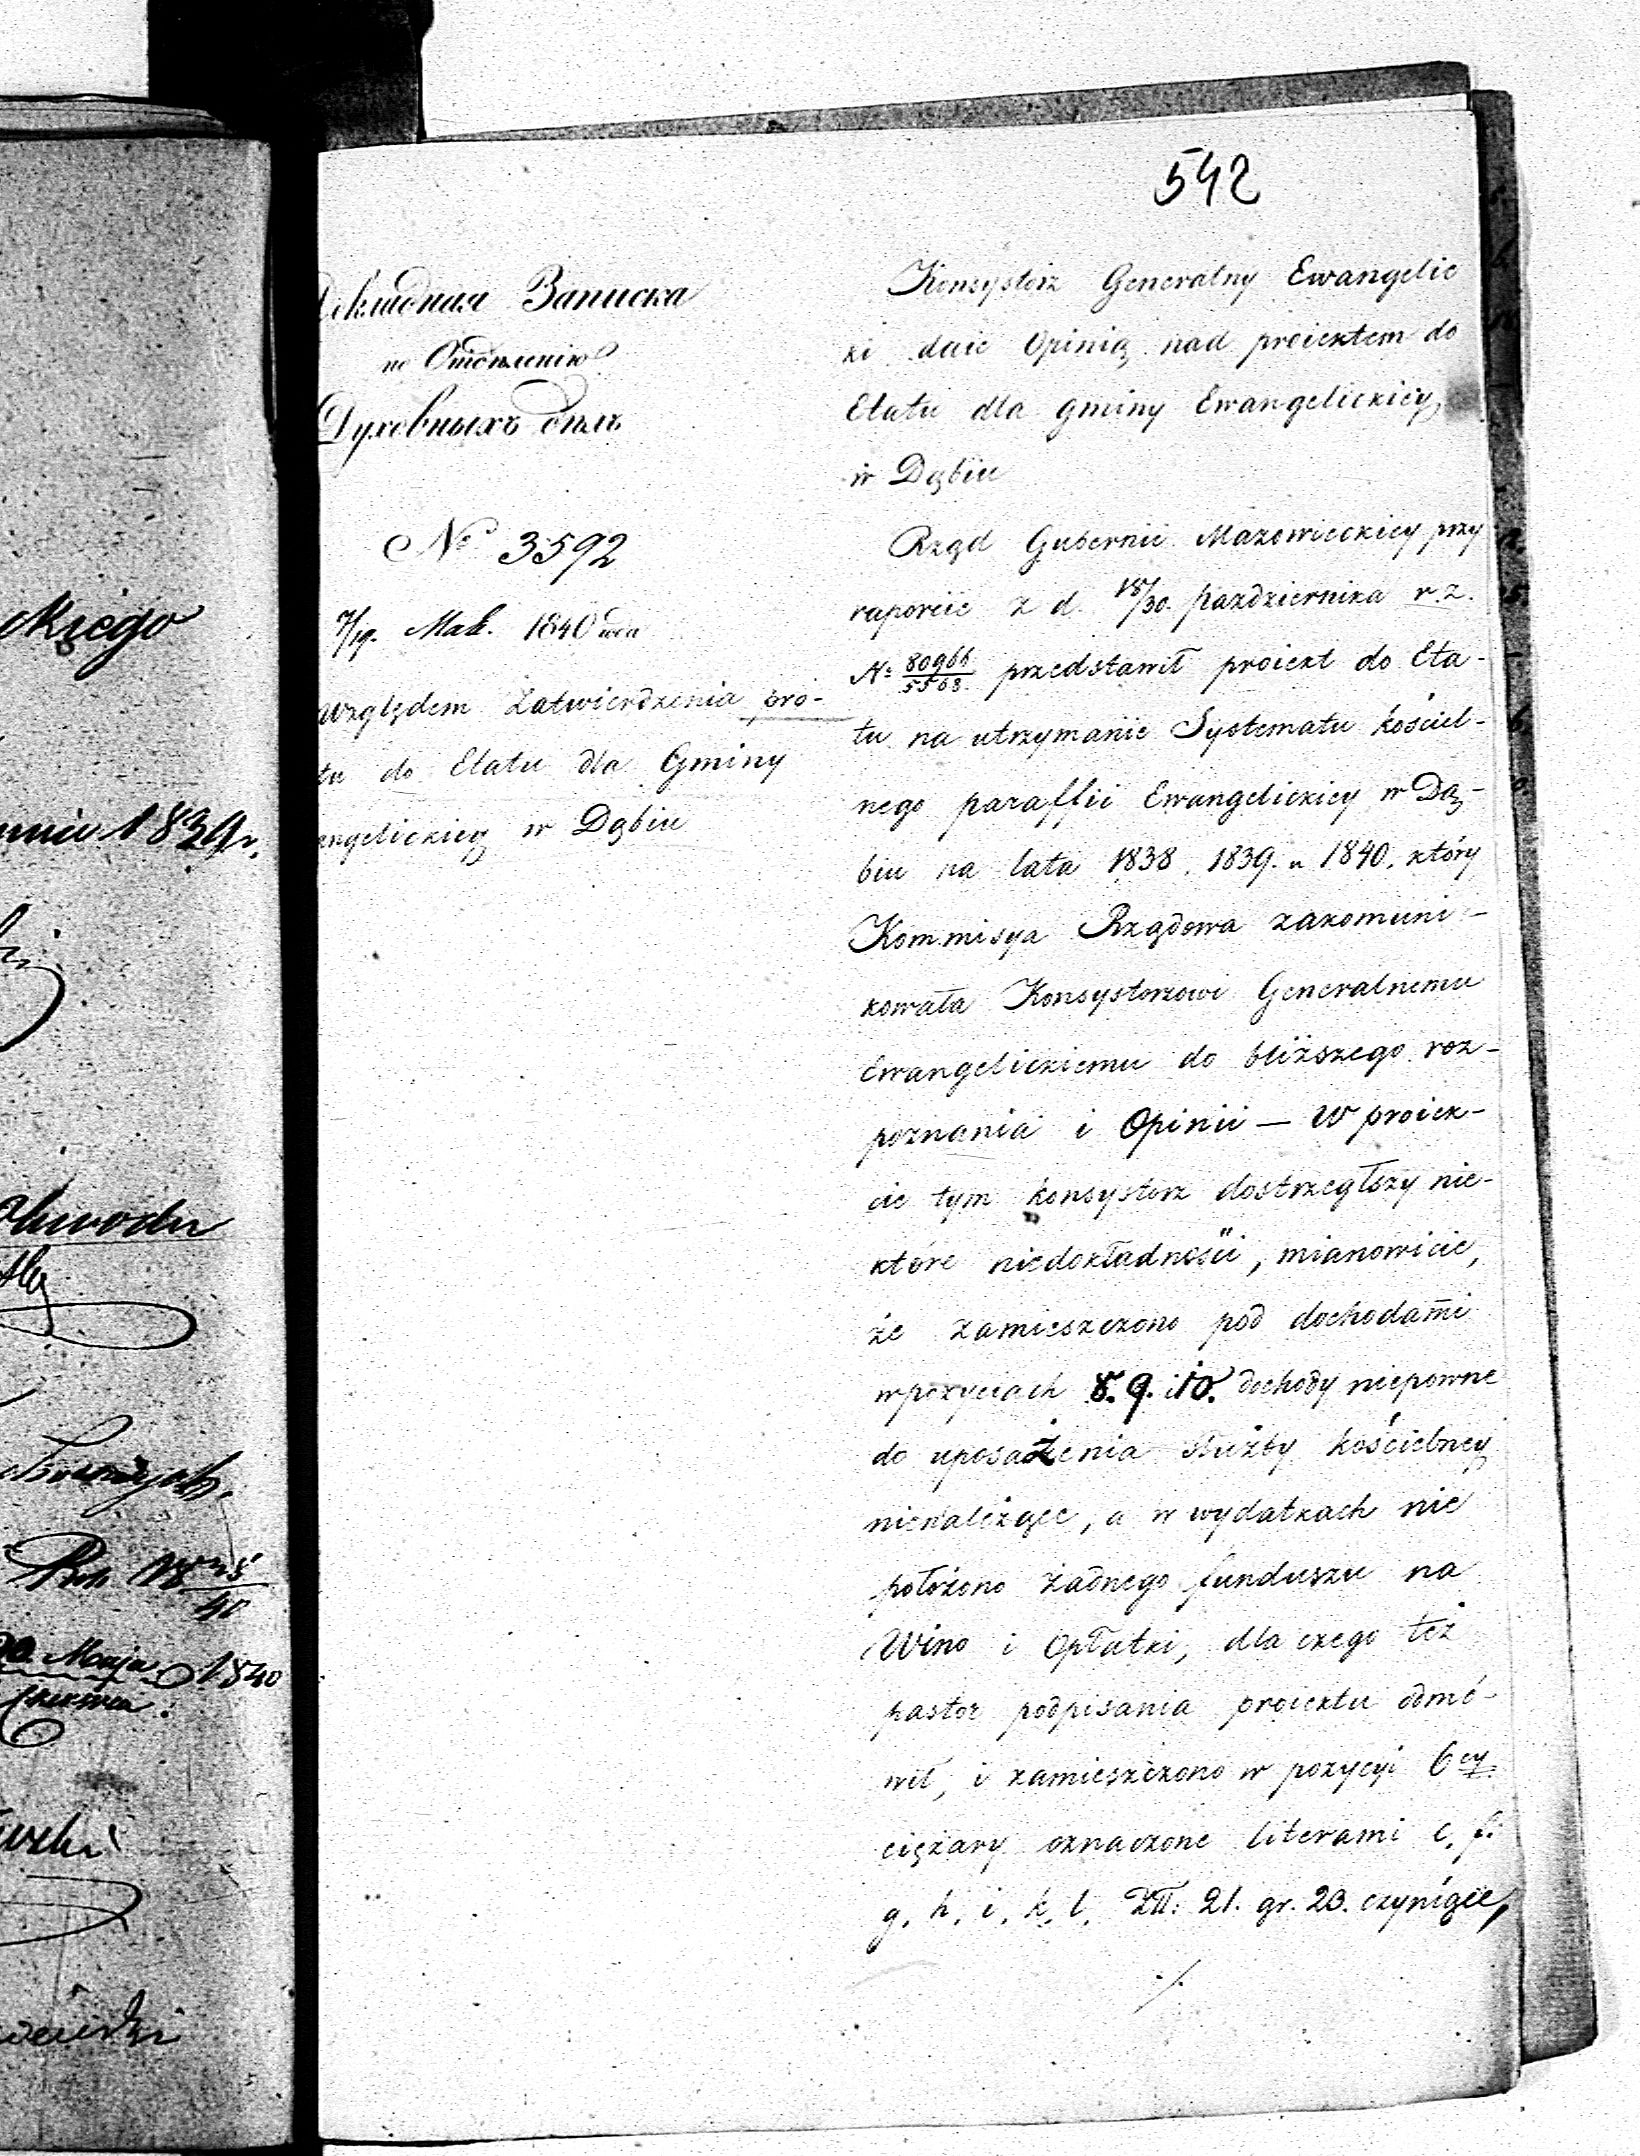 542
Докладная Записка
по Отдѣленію
Духовныхъ дѣлъ
№ 3592
7/19. Mak. 1840
Względem Zatwierdzenia pro-
tu do Etatu dla Gminy
angelickiey w Dąbiu
Konsystorz Generalny Ewangelic
ki daie Opinią nad proiektem do
Etatu dla gminy Ewangelickiey
w Dąbiu
Rząd Gubernii Mazowieckiey przy
raporcie z d. 18/30. pazdziernika r. z.
№ 80966/5568. przedstawił proiekt do Eta-
tu na utrzymanie Systematu kościel-
nego paraffii Ewangelickiey w Dą-
biu na lata 1838. 1839. u 1840. który
Kommisya Rządowa zakomuni-
kowała Konsystorzowi Generalnemu
Ewangelickiemu do bliższego roz-
poznania i Opinii — W proiek-
cie tym konsystorz dostrzegłszy nie-
które niedokładności, mianowicie,
że zamieszczono pod dochodami
w pozyciach 8. 9. i 10. dochody niepewne
do uposażenia służby kościelney
nienależące, a w wydatkach nie
położono żadnego funduszu na
Wino i Opłatki, dla czego też
pastor podpisania proiektu odmó-
wił, i zamieszczono w pozycyi 6cy.
ciężary oznaczone literami e. f.
g. h. i. k. l. Złł: 21. gr. 23. czyniące,
./.
ckiego
1839 r.
Obwodu
Rok 1838/40
Maja 1840
Czerwca